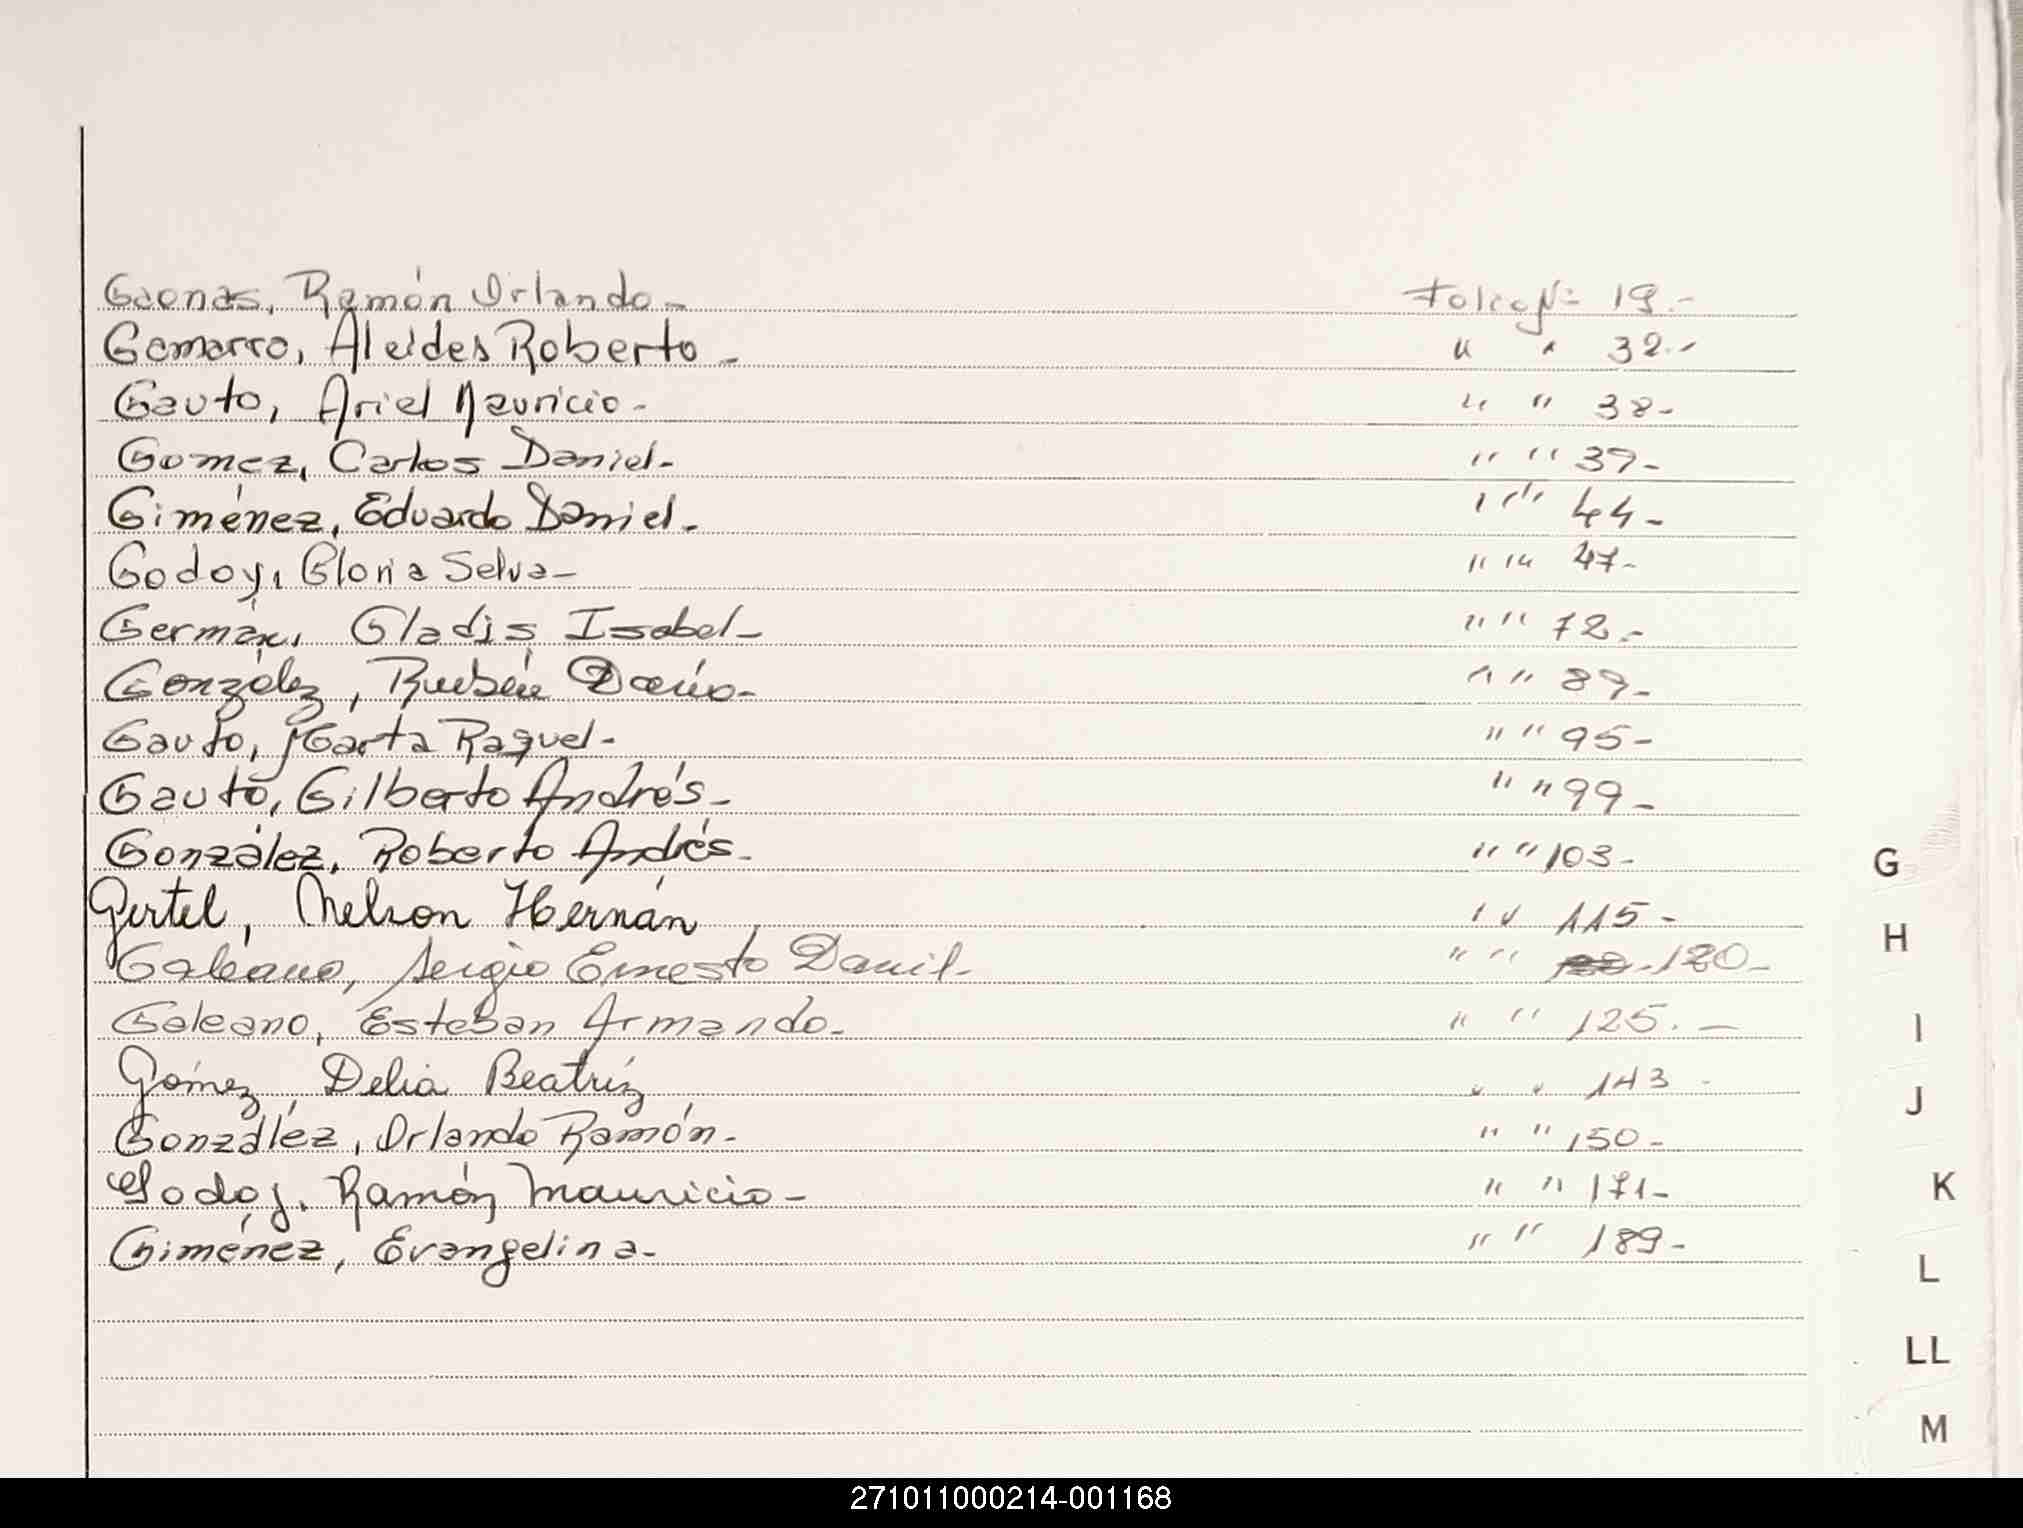 Gaonas, Ramón Orlando- Folio Nº 19.-
Gamarro, Aleides Roberto- " " 32.-
Gauto, Ariel Mauricio- " " 38-
Gomez, Carlos Daniel- " " 39-
Giménez, Eduardo Daniel- " " 44-
Godoy, Gloria Selva- " " 47-
Germán, Gladis Isabel- " " 72.-
González, Rubén Darío- " " 89-
Gauto, Marta Raquel- " " 95-
Gauto, Gilberto Andrés- " " 99-
González, Roberto Andrés- " " 103-
G
Gertel, Nelson Hernán " " 115-
H
Galeano, Sergio Ernesto Daniel- " " 120-
Galeano, Esteban Armando- " " 125.-
I
Gómez, Delia Beatríz " " 143-
J
González, Orlando Ramón- " " 150-
Godoy, Ramón Mauricio- " " 171-
K
Giménez, Evangelina- " " 189-
L
LL
M
271011000214-001168